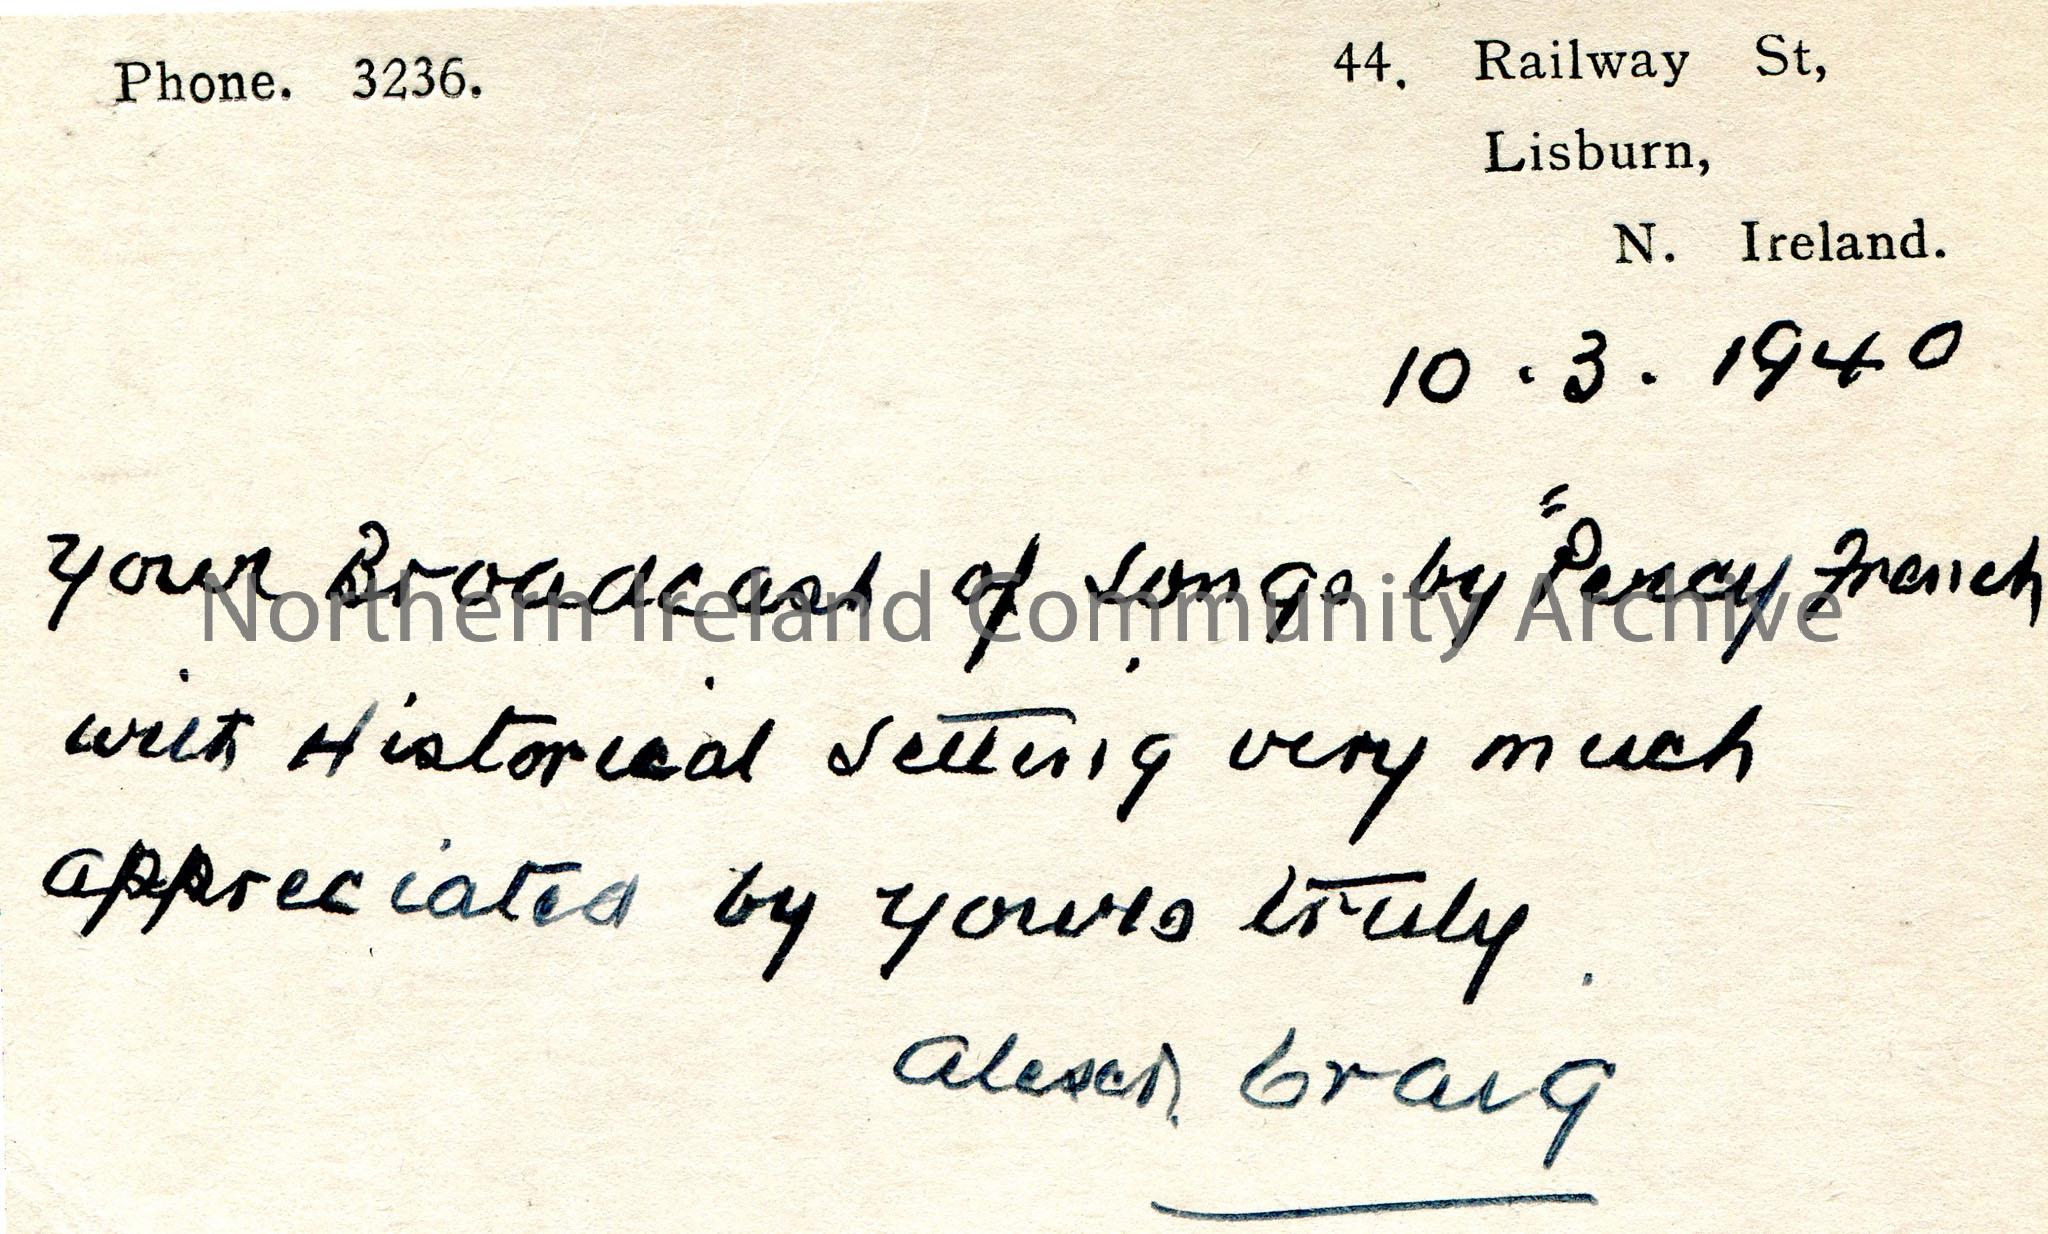 Phone. 3236.
44. Railway St,
Lisburn,
N. Ireland.
10.3.1940
Your Broadcast of Songs by "Percy French
Northern Ireland Community Archive
with Historical Setting very much
appreciated by yours truly.
Alexdr. Craig